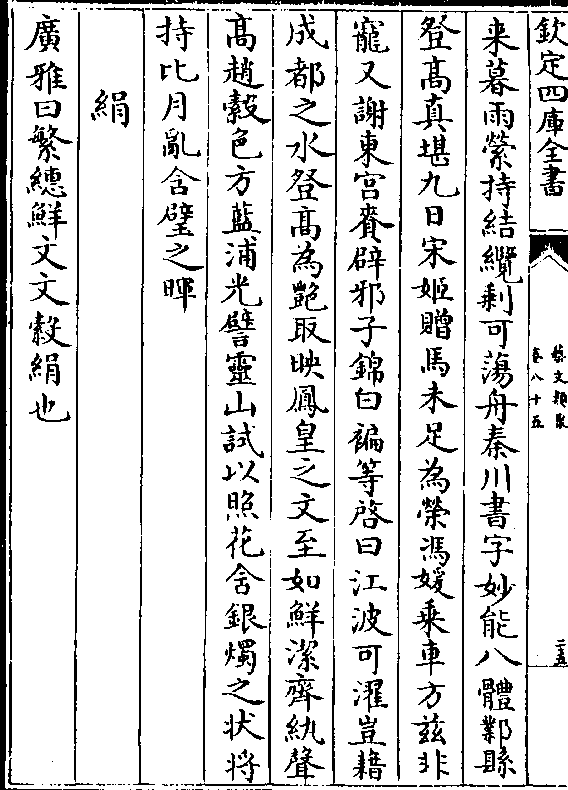 欽定四庫全書
藝文類聚
卷八十五
二五
来暮雨縈持結纜剩可蕩舟秦川書字妙能八體鄴縣
登髙真堪九日宋姬贈馬未足為榮馮媛乗車方兹非
寵又謝東宫賚辟邪子錦白褊等啓曰江波可濯豈藉
成都之水登髙為艷取映鳳皇之文至如鮮潔齊紈聲
髙趙縠色方藍浦光譬靈山試以照花含銀燭之状将
持比月亂含璧之暉
絹
廣雅曰繁總鮮文文縠絹也